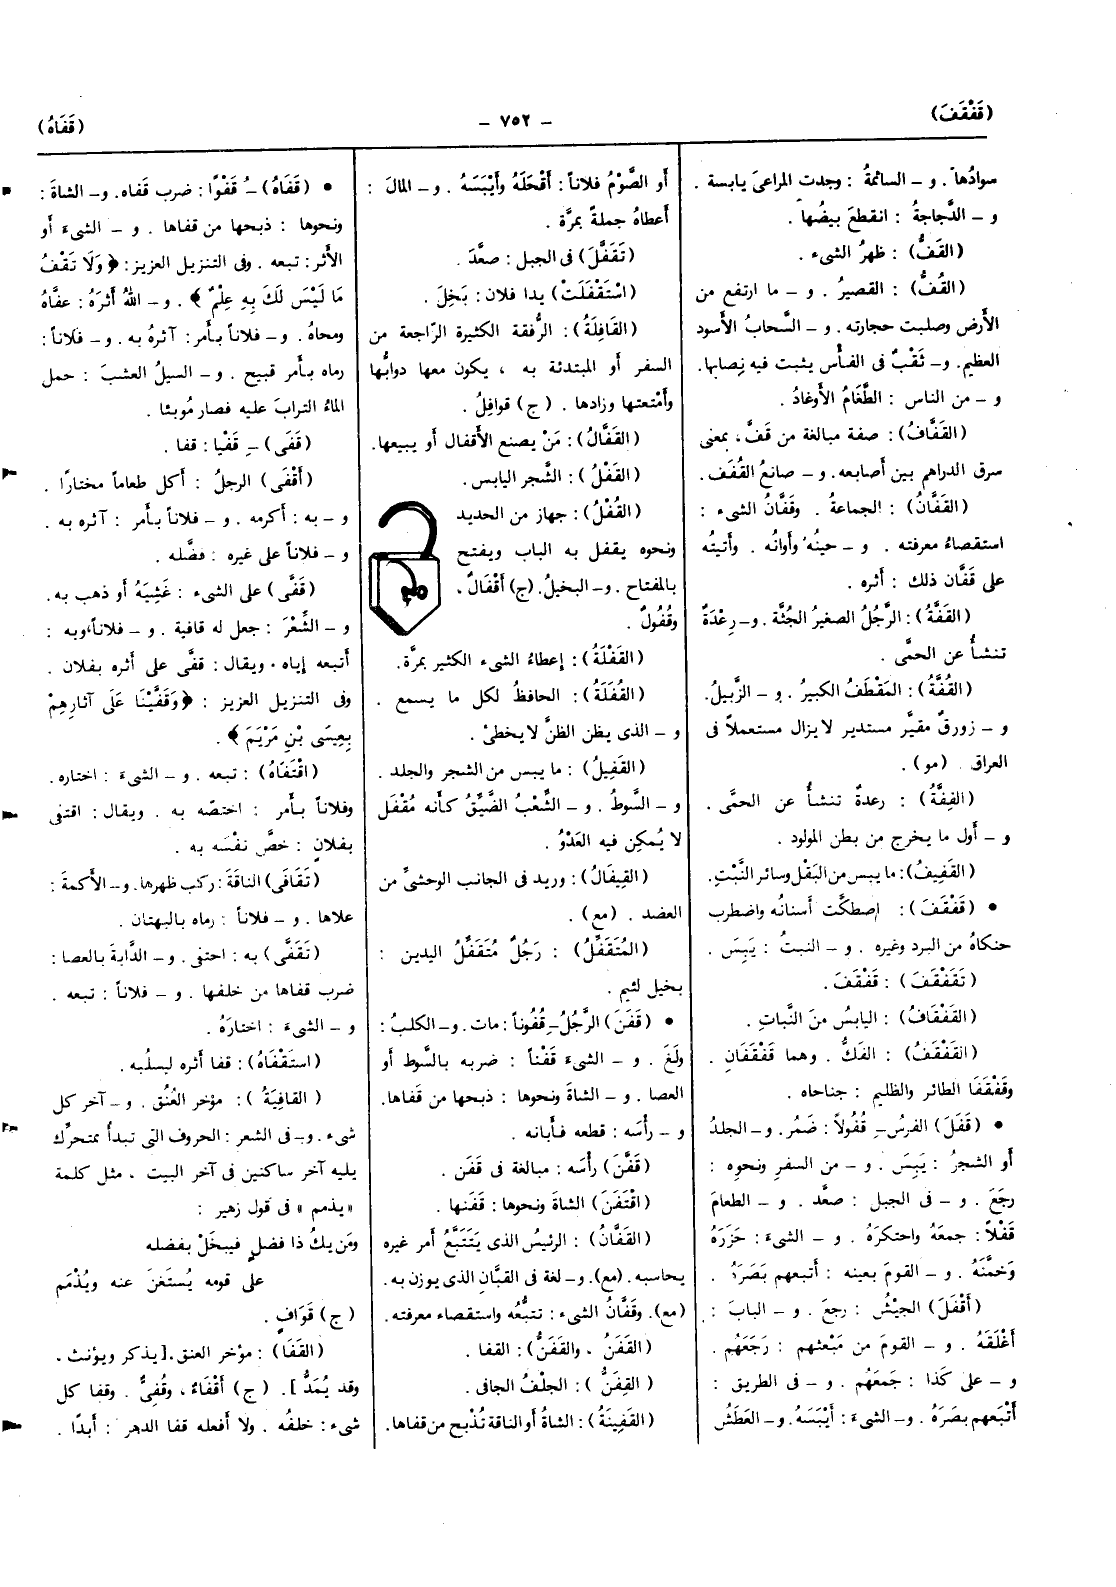 (قَفْقَفَ)
— ٧٥٢ —
(قَفَاهُ)
سوادُها. و – السائمةُ : وجدت المراعىَ يابسة .
و – الدَّجاجةُ : انقطعَ بيضُها .
(القَفُّ) : ظهرُ الشىء .
(القُفُّ) : القصيرُ . و – ما ارتفع من
الأَرض وصلبت حجارته. و – السَّحابُ الأَسود
العظيم. و – ثَقْبٌ فى الفأْس يثبت فيه نِصابها.
و – من الناس : الطَّغَامُ الأَوغادُ .
(القَفَّافُ): صفة مبالغة من قَفَّ، بمعنى
سرق الدراهم بين أصابعه. و – صانعُ القُفَف.
(القَفَّانُ) : الجماعةُ . وقَفَّانُ الشىء :
استقصاءُ معرفته . و – حينُه وأوانُه . وأَتيتُه
على قَفَّان ذلك : أَثره .
(القَفَّةُ): الرَّجُلُ الصغيرُ الجُثَّة . و – رِعْدَةٌ
تنشأُ عن الحمَّى .
(القُفَّةُ): المَقْطَفُ الكبيرُ . و – الزَّبيلُ.
و – زورقٌ مقيَّر مستدير لا يزال مستعملاً فى
العراق . (مو) .
(القِفَّةُ) : رعدةٌ تنشأُ عن الحمَّى .
و – أَول ما يخرج من بطن المولود .
(القَفِيفُ): ما يبس من البَقْل وسائر النَّبْتِ.
• (قَفْقَفَ): اصطكَّت أسنانُه واضطرب
حنكاهُ من البرد وغيره . و – النبتُ : يَبِسَ .
(تَقَفْقَفَ) : قَفْقَفَ .
(القَفْقَافُ) : اليابسُ منَ النَّباتِ .
(القَفْقَفُ) : الفَكُّ . وهما قَفْقَفَانِ .
وقَفْقَفَا الطائر والظليم : جناحاه
• (قَفَلَ) الفرسُ – ُ قُفُولاً : ضَمُر. و – الجلدُ
أَو الشجرُ : يَبِسَ . و – من السفرِ ونحوِه :
رجَعَ . و – فى الجبل : صعَّد . و – الطعامَ
قَفْلاً : جمعَهُ واحتكرَهُ . و – الشىءَ : حَزَرَهُ
وَخمَّنَهُ . و – القومَ بعينه : أَتبعهم بَصَرَهُ .
(أَقْفَلَ) الجيْشُ : رجعَ . و – البابَ :
أَغْلَقَهُ . و – القومَ من مَبْعثهم : رَجَعَهُم .
و – على كذا : جَمَعَهُم . و – فى الطريق :
أَتْبَعهم بصَرَهُ . و – الشىءَ : أَيْبَسَهُ. و – العَطَشُ
أَو الصَّوْمُ فلاناً : أَقْحَلَهُ وأَيْبَسَهُ . و – المالَ :
أَعطاهُ جملةً بمرَّة .
(تَقَفَّلَ) فى الجبل : صعَّدَ .
(اسْتَقْفَلَتْ) يدا فلان : بَخِلَ .
(القَافِلَةُ): الرُّفقة الكثيرة الرَّاجعة من
السفر أَو المبتدئة به ، يكون معها دوابُّها
وأَمْتعتها وزادها . (ج) قوافِلُ .
(القَفَّالُ): مَنْ يصنع الأَقفال أَو يبيعها.
(القَفْلُ) : الشَّجر اليابس.
(القُفْلُ): جهاز من الحديد
ونحوه يقفل به الباب ويفتح
بالمفتاح . و – البخيلُ. (ج) أَقْفَالٌ ،
وقُفُولٌ .
(القَفْلَةُ) : إعطاءُ الشىء الكثير بمرَّة.
(القُفَلَةُ) : الحافظُ لكل ما يسمع .
و – الذى يظن الظنَّ لا يخطئ .
(القَفِيلُ) : ما يبس من الشجر والجلد .
و – السَّوطُ . و – الشِّعْبُ الضَّيِّقُ كأَنه مُقْفَل
لا يُمكِن فيه العَدْوُ .
(القِيفَالُ) : وريد فى الجانب الوحشىِّ من
العضد . (مع) .
(المُتَقَفِّلُ) : رَجُلٌ مُتَقَفِّلُ اليدين :
بخيل لئيم .
• (قَفَنَ) الرَّجُلُ – ِ قُفُوناً : مات. و – الكلبُ :
ولَغَ . و – الشىءَ قَفْناً : ضربه بالسَّوط أَو
العصا . و – الشاةَ ونحوها : ذبحها من قفاها.
و – رأْسَه : قطعه فأَبانه .
(قَفَّنَ) رأْسَه : مبالغة فى قَفَن .
(اقْتَفَنَ) الشاةَ ونحوها: قَفَنها .
(القَفَّانُ) : الرئيسُ الذى يَتَتَبَّعُ أمر غيره
يحاسبه. (مع). و – لغة فى القبَّانِ الذى يوزن به .
(مع). وقَفَّانُ الشىء : تتبُّعُه واستقصاء معرفته .
(القَفَنُ ، والقَفَنُّ) : القفا .
(القِفَنُّ) : الجلْفُ الجافى .
(القَفِينَةُ) : الشاةُ أَو الناقة تُذْبح من قفاها.
• (قَفَاهُ) – ُ قَفْوًا : ضرب قفاه. و – الشاةَ :
ونحوها : ذبحها من قفاها . و – الشىءَ أَو
الأَثر : تبعه . وفى التنزيل العزيز : ﴿ وَلَا تَقْفُ
مَا لَيْسَ لَكَ بِهِ عِلْمٌ ﴾ . و – اللهُ أَثرَهُ : عفَّاهُ
ومحاهُ. و – فلاناً بأَمر: آثرهُ به . و – فلاناً :
رماه بأَمر قبيح . و – السيلُ العشبَ : حمل
الماءُ الترابَ عليه فصار مُوبئا .
(قَفَى) – ِ قَفْيا : قفا .
(أَقْفَى) الرجلُ : أَكل طعاماً مختارًا .
و – به : أَكرمه . و – فلاناً بأَمر : آثره به .
و – فلاناً على غيره : فضَّله .
(قَفَّى) على الشىء : غَشِيَهُ أَو ذهب به .
و – الشِّعْرَ : جعل له قافية . و – فلاناً، وبه :
أَتبعه إياه . ويقال : قفَّى على أثره بفلان .
وفى التنزيل العزيز : ﴿ وَقَفَّيْنَا عَلَى آثَارِهِمْ
بِعِيسَى بْنِ مَرْيَمَ ﴾ .
(اقْتَفَاهُ) : تبعه . و – الشىءَ : اختاره .
وفلاناً بأَمر : اختصَّه به . ويقال : اقتفى
بفلانٍ : خصَّ نفْسَه به .
(تَقَافَى) الناقةَ : ركب ظهرها. و – الأَكمةَ :
علاها . و – فلاناً : رماه بالبهتان .
(تَقَفَّى) به : احتفى . و – الدَّابةَ بالعصا :
ضرب قفاها من خلفها . و – فلاناً : تبعه .
و – الشىءَ : اختارَهُ .
(استَقْفَاهُ) : قفا أثره ليسلُبه .
(القافِيَةُ) : مؤخر العُنُق . و – آخر كل
شىء . و – فى الشعر : الحروف التى تبدأُ بمتحرِّك
يليه آخر ساكنين فى آخر البيت ، مثل كلمة
« يذمم » فى قول زهير :
ومَن يكُ ذا فضلٍ فيبخَلْ بفضله
على قومه يُستَغنَ عنه ويُذْمَم
(ج) قَوَافٍ .
(القَفَا) : مؤخر العنق. [يذكر ويؤنث ،
وقد يُمَدُّ] . (ج) أَقْفَاءٌ، وقُفِىٌّ . وقفا كل
شىء : خلفُه . ولا أفعله قفا الدهر : أبدًا .